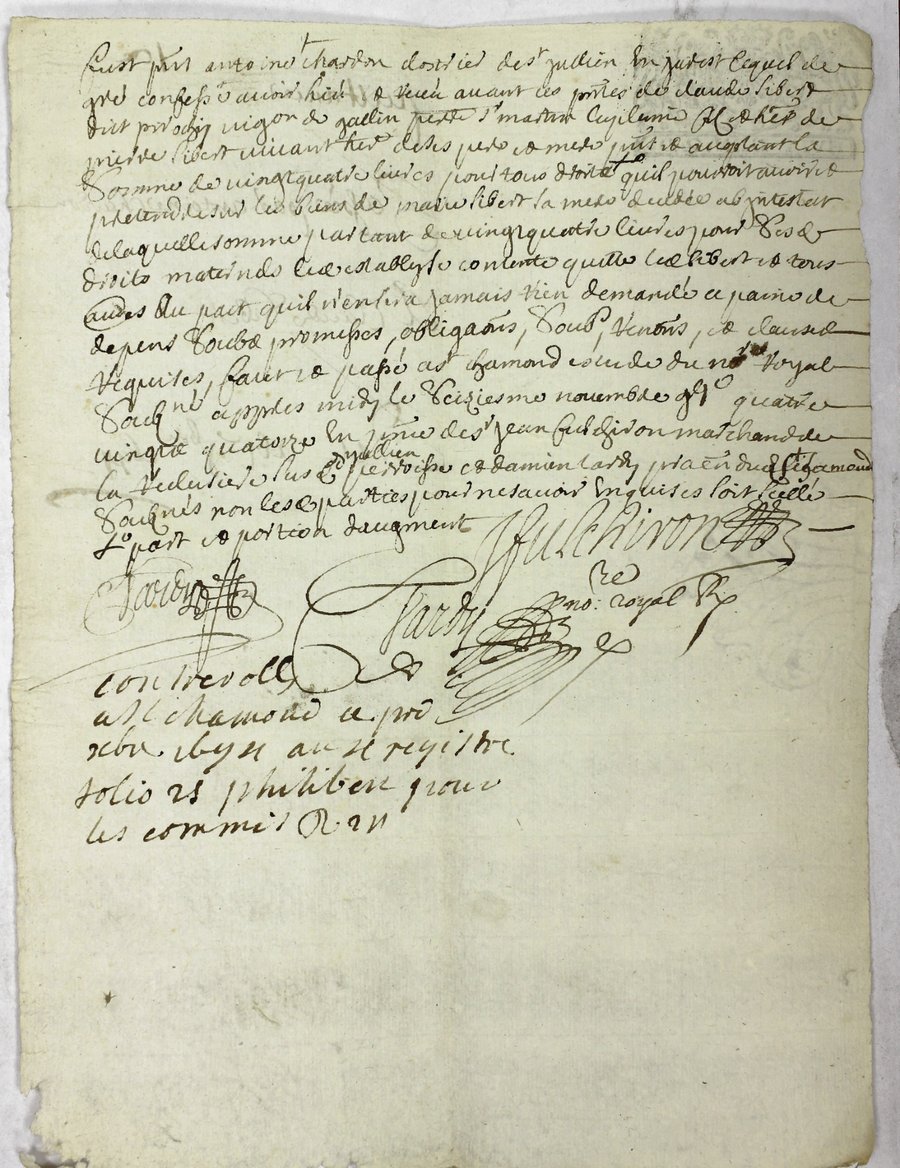 fust pnt antoine chardon clostrier de st jullien en jarest lequel de
gré confesse avoir heu & receu avant ces pntes de claude libert
dict vigon de pere st martin fil & her de
pierre libert vivant her de ses pere & mere pnt & acceptant la
Somme de vingt quatre livres pour tous droits qu'il pourroit avoir &
pretendre sur les biens de marie libert sa mere decedée ab intestat
de laquelle somme partant de vingt quatre livres pour Ses
droits maternels led establys se contente quitte led libert & tous
autres du pact qu'il n'en sera jamais rien demandé a paine de
depens Soubz promesses, obligaons, Soubs, renons, & clauses
requises, faict & passé a st chamond estude du nore royal
Soubné appres midy le Seiziesme novembre quatre
vingtz quatorze En pnce de sr jean fulchiron marchand de
la reclusiere jullien perroisse & damien tardy praén dud st chamond
Soubnés non lesd parties pour ne savoir Enquises soit scellé
part & portion d'augment Jfulchiron
Tardy Tardy no:re royal R
controlle
a st chamond ce pre
xbre 1694 au 4e registre
folio 25 philibert pour
les commis R 2s